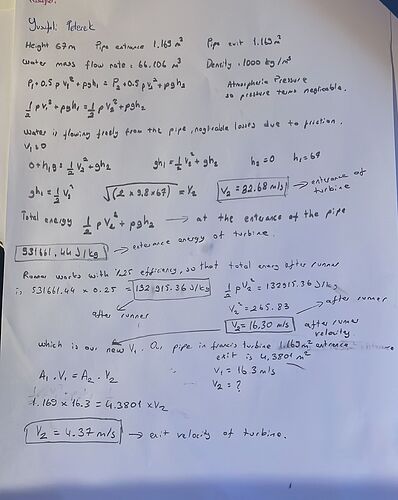 Height 67m Pipe entrance 1.169 m² Pipe exit 1.169 m²
Water mass flow rate : 66.106 m³ Density : 1000 kg/m³
P₁ + 0.5 ρ V₁² + ρgh₁ = P₂ + 0.5 ρV₂² + ρgh₂ Atmospheric Pressure
so pressure terms neglicable.
1/2 ρV₁² + ρgh₁ = 1/2 ρV₂² + ρgh₂
Water is flowing freely from the pipe, neglicable losses due to friction.
V₁ = 0
0 + h₁g = 1/2 V₂² + gh₂ gh₁ = 1/2 V₂² + gh₂ h₂ = 0 h₁ = 67
gh₁ = 1/2 V₂² √(2 x 9,8 x 67) = V₂ V₂ = 32.68 m/s → entrance of
turbine
Total energy 1/2 ρV₂² + ρgh₂ → at the entrance of the pipe
531661.44 J/kg → entrance energy of turbine.
Runner works with %25 efficiency, so that total energy after runner
is 531661.44 x 0.25 = 132 915.36 J/kg 1/2 ρV₂² = 132915.36 J/kg
after runner
V₂² = 265.83 → after runner
V₂ = 16.30 m/s after runner
velocity
which is our new V₁. Our pipe in francis turbine 1.169 m² entrance
exit is 4,3801 m²
A₁ . V₁ = A₂ . V₂ V₁ = 16.3 m/s
V₂ = ?
1.169 x 16.3 = 4.3801 x V₂
V₂ = 4.37 m/s → exit velocity of turbine.